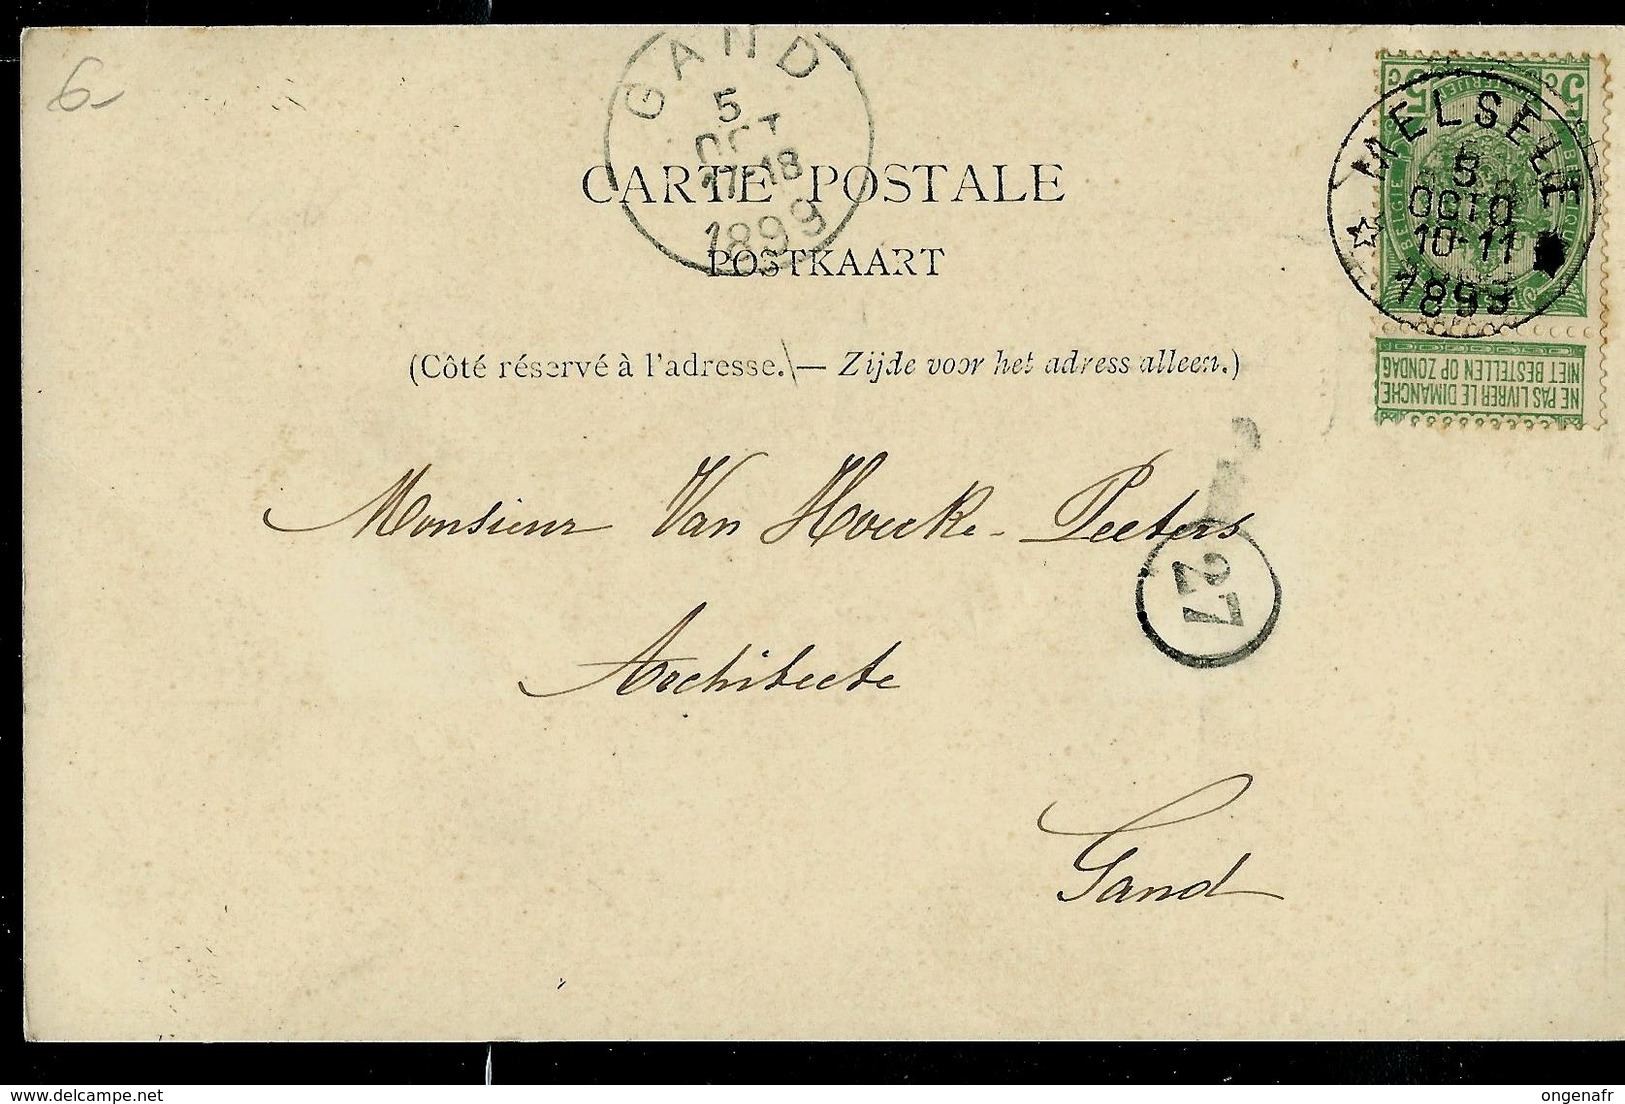 6-
GAND
5
OCT
17-18
1899
MELSELE
5
OCTO
10-11
1899
5 C 5 C
BELGIE
NIET BESTELLEN OP ZONDAG
NE PAS LIVRER LE DIMANCHE
CARTE POSTALE
POSTKAART
(Côté réservé à l'adresse. — Zijde voor het adress alleen.)
Monsieur Van Hoecke-Peeters
27
Architecte
Gand
delcampe.net
ongenafr